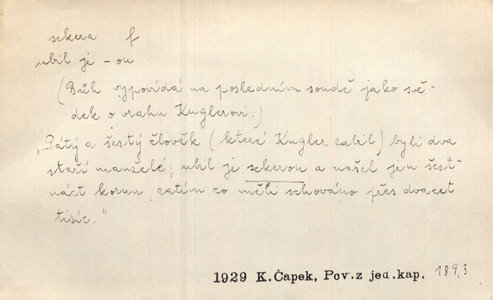 sekera f
ubil je -ou
(Bůh vypovídá na posledním soudě jako svě-
dek o vrahu Kuglerovi:)
„Pátý a šestý člověk (které Kugler zabil) byli dva
staří manželé; ubil je sekerou a našel jen šest-
náct korun, zatím co měli schováno přes dvacet
tisíc.“
1929 K.Čapek, Pov.z jed.kap. 189,3